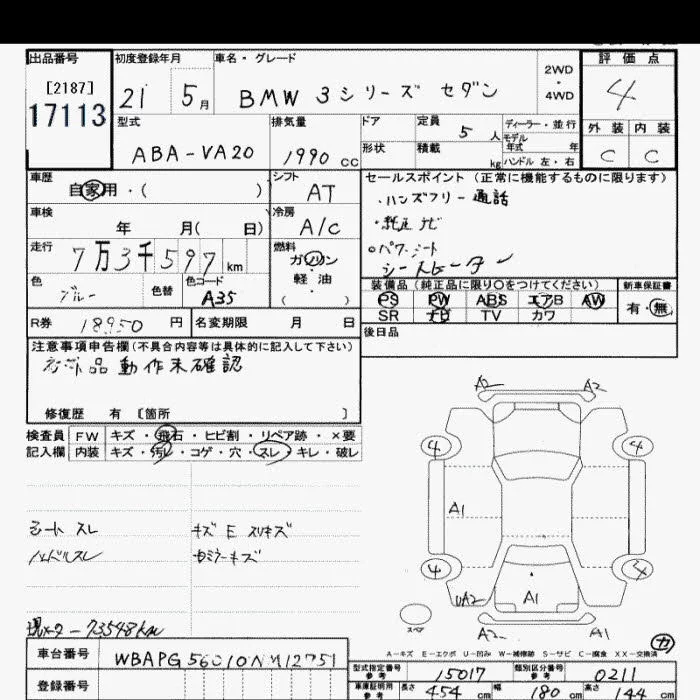 出品番号 初度登録年月 車名・グレード 評価点
[2187]
17113
21 5月 BMW 3シリーズ セダン 2WD・4WD 4
型式 排気量 ドア 定員 5人 ディーラー・並行 外装 内装
モデル年式 年
ABA-VA20 1990cc 形状 積載 kg ハンドル 左・右 C C
車歴 シフト セールスポイント (正常に機能するものに限ります)
自家用・( ) AT ・ハンズフリー通話
車検 冷房 ・純正ナビ
年 月( 日) A/C ○パワーシート
走行 燃料 シートヒーター
7万3千597km ガソリン・軽油
( )
色 色替 色コード 装備品(純正品に限り○をつけてください) 新車保証書
ブルー A35 PS PW ABS エアB AW 有・無
SR ナビ TV カワ
R券 18950円 名変期限 月 日 後日品
注意事項申告欄(不具合内容等は具体的に記入して下さい)
動作未確認
修復歴 有 〔箇所 〕
検査員 FW キズ・飛石・ヒビ割・リペア跡・×要
記入欄 内装 キズ・汚れ・コゲ・穴・スレ・キレ・破レ
A2 A2
4 4
A1
シート スレ
ハンドルスレ
4 4
UA2 A1
スペア
A2 A1
A-キズ E-エクボ U-凹み W-補修跡 S-サビ C-腐食 XX-交換済
現メータ-73548km
車台番号 WBAPG56010NM12751
登録番号
型式指定番号 参考 15017 類別区分番号 参考 0211
車庫証明用 参考 長さ 454cm 幅 180cm 高さ 144cm